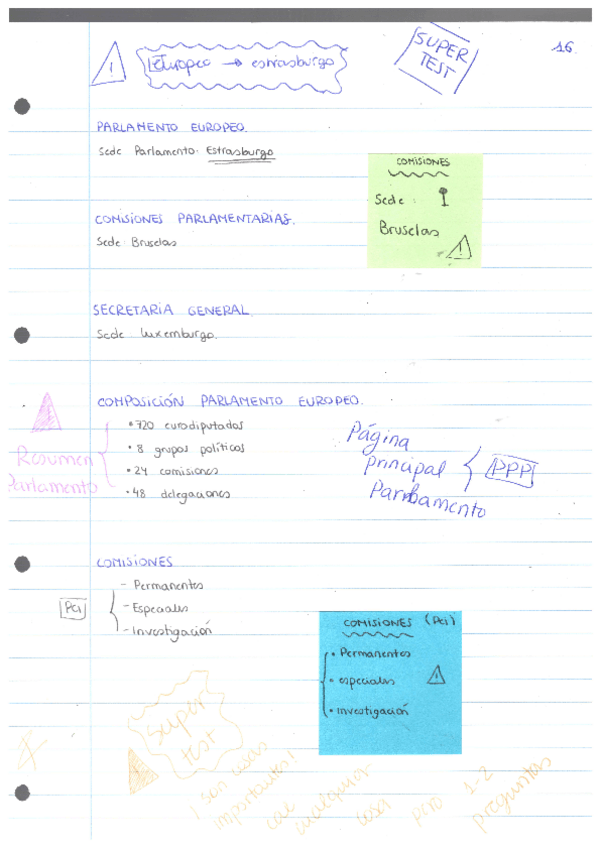 Europeo → estrasburgo
SUPER
TEST
16
PARLAMENTO EUROPEO.
Sede Parlamento: Estrasburgo
COMISIONES
Sede:
Bruselas
COMISIONES PARLAMENTARIAS.
Sede: Bruselas
SECRETARIA GENERAL.
Sede: Luxemburgo.
COMPOSICIÓN PARLAMENTO EUROPEO.
• 720 eurodiputados
• 8 grupos políticos
• 24 comisiones
• 48 delegaciones
Resumen
Parlamento
Página
principal
Parlamento
PPP
COMISIONES
PCI
- Permanentes
- Especiales
- Investigación
COMISIONES (PCI)
• Permanentes
• especiales
• investigación
super
test
¡ son cosas
importantes!
cae
cualquier
cosa
pero
1-2
preguntas